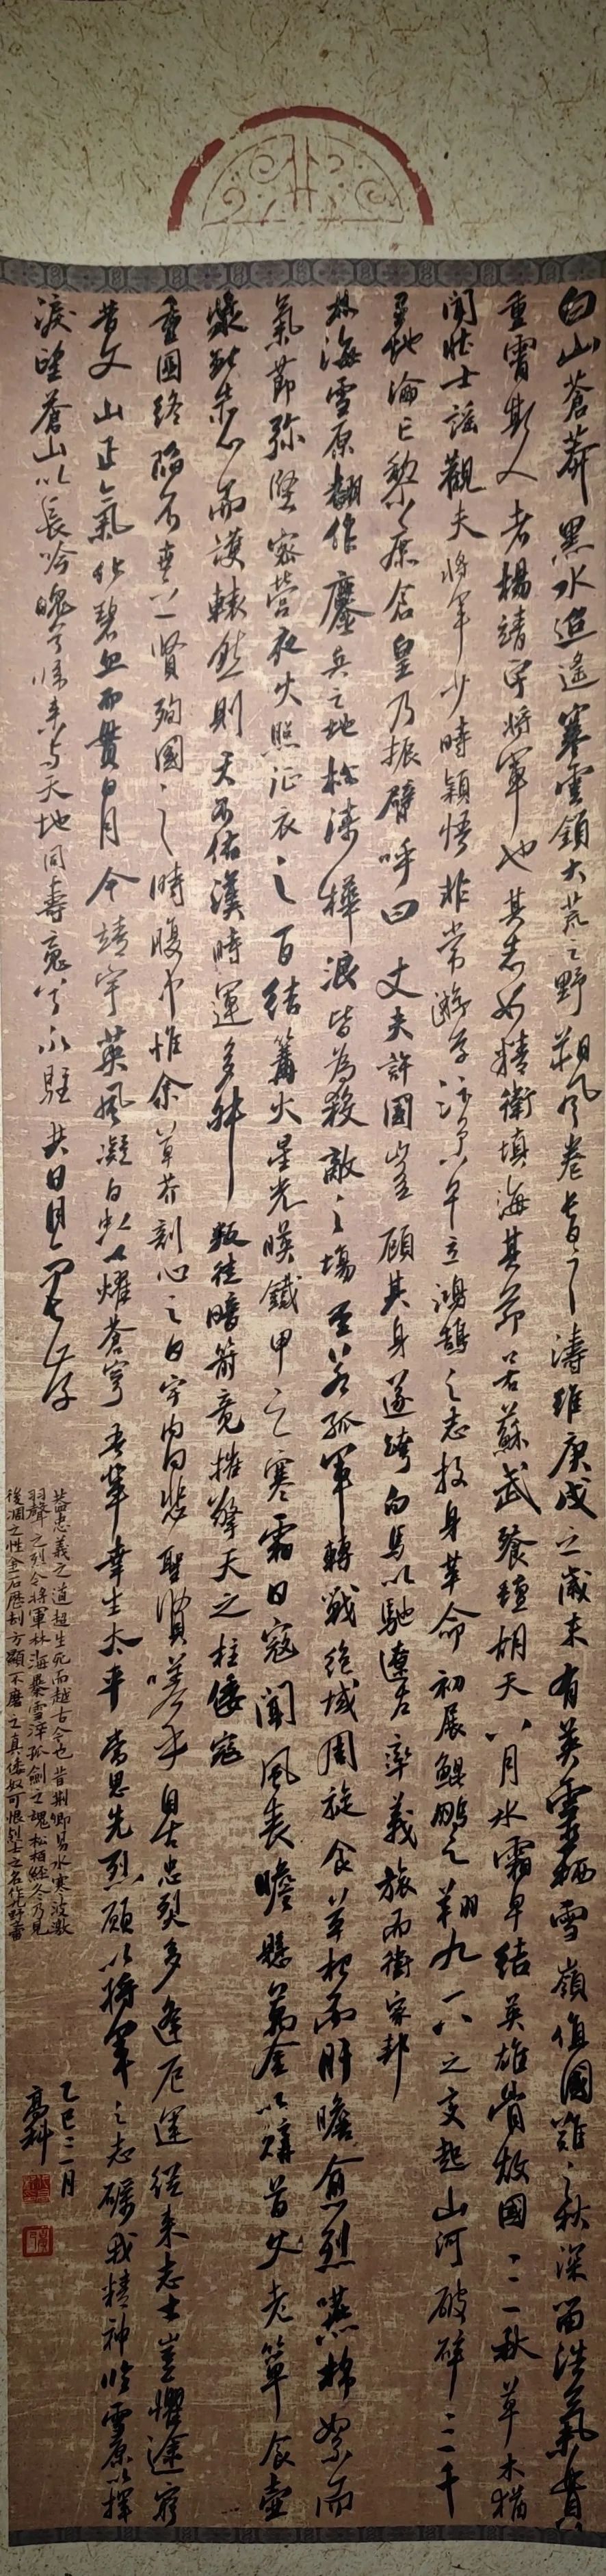 白山蒼莽黑水迢遙寒雲鎖大荒之野朔風卷雪之濤維庚戌之歲末有英靈栖雪嶺值國難之秋深留浩氣貫
重霄斯人者楊靖宇將軍也其志如精衛填海其節若蘇武餐氈胡天八月水霜早結英雄骨故國三秋草木猶
聞壯士謠觀夫將軍少時穎悟非常遊學汴京早立鴻鵠之志投身革命初展鯤鵬之翔九一八之变起山河破碎三千
里地淪亡黎庶倉皇乃振臂呼曰丈夫許國豈顧其身遂跨白馬以馳遼右率義旅而衛家邦
林海雪原翻作鏖兵之地松濤樺浪皆為殺敵之場至若孤軍轉戰絕域周旋食草根而肝膽愈烈嚥棉絮而
氣節弥堅密營夜火照征衣之百結篝火星光暎鐵甲之寒霜日寇聞風喪瞻懸萬金以購首父老簞食壺
漿懷忠而護轅然則天不佑漢時運多舛叛徒暗箭竟摧擎天之柱倭寇
重圍終陷一賢殉國之時腹中惟余草芥剖心之日宇內同悲聖賢嗟乎自古忠烈多逢厄運從來志士豈懼途窮
昔文山正氣化碧血而貫日月今靖宇英風凝白虹以耀蒼穹吾輩幸生太平當思先烈願以將軍之志礪我精神臨雪原以揮
淚望蒼山以長吟魄兮歸來与天地同壽魂兮永駐共日月長存
蓋忠義之道超生死而越古今也昔荊卿易水寒波激
羽聲之烈今將軍林海暴雪淬孤劍之魂松柏經冬乃見
後凋之性金石歷刦方顯不磨之真倭奴可恨烈士之名作
乙巳三月
高科